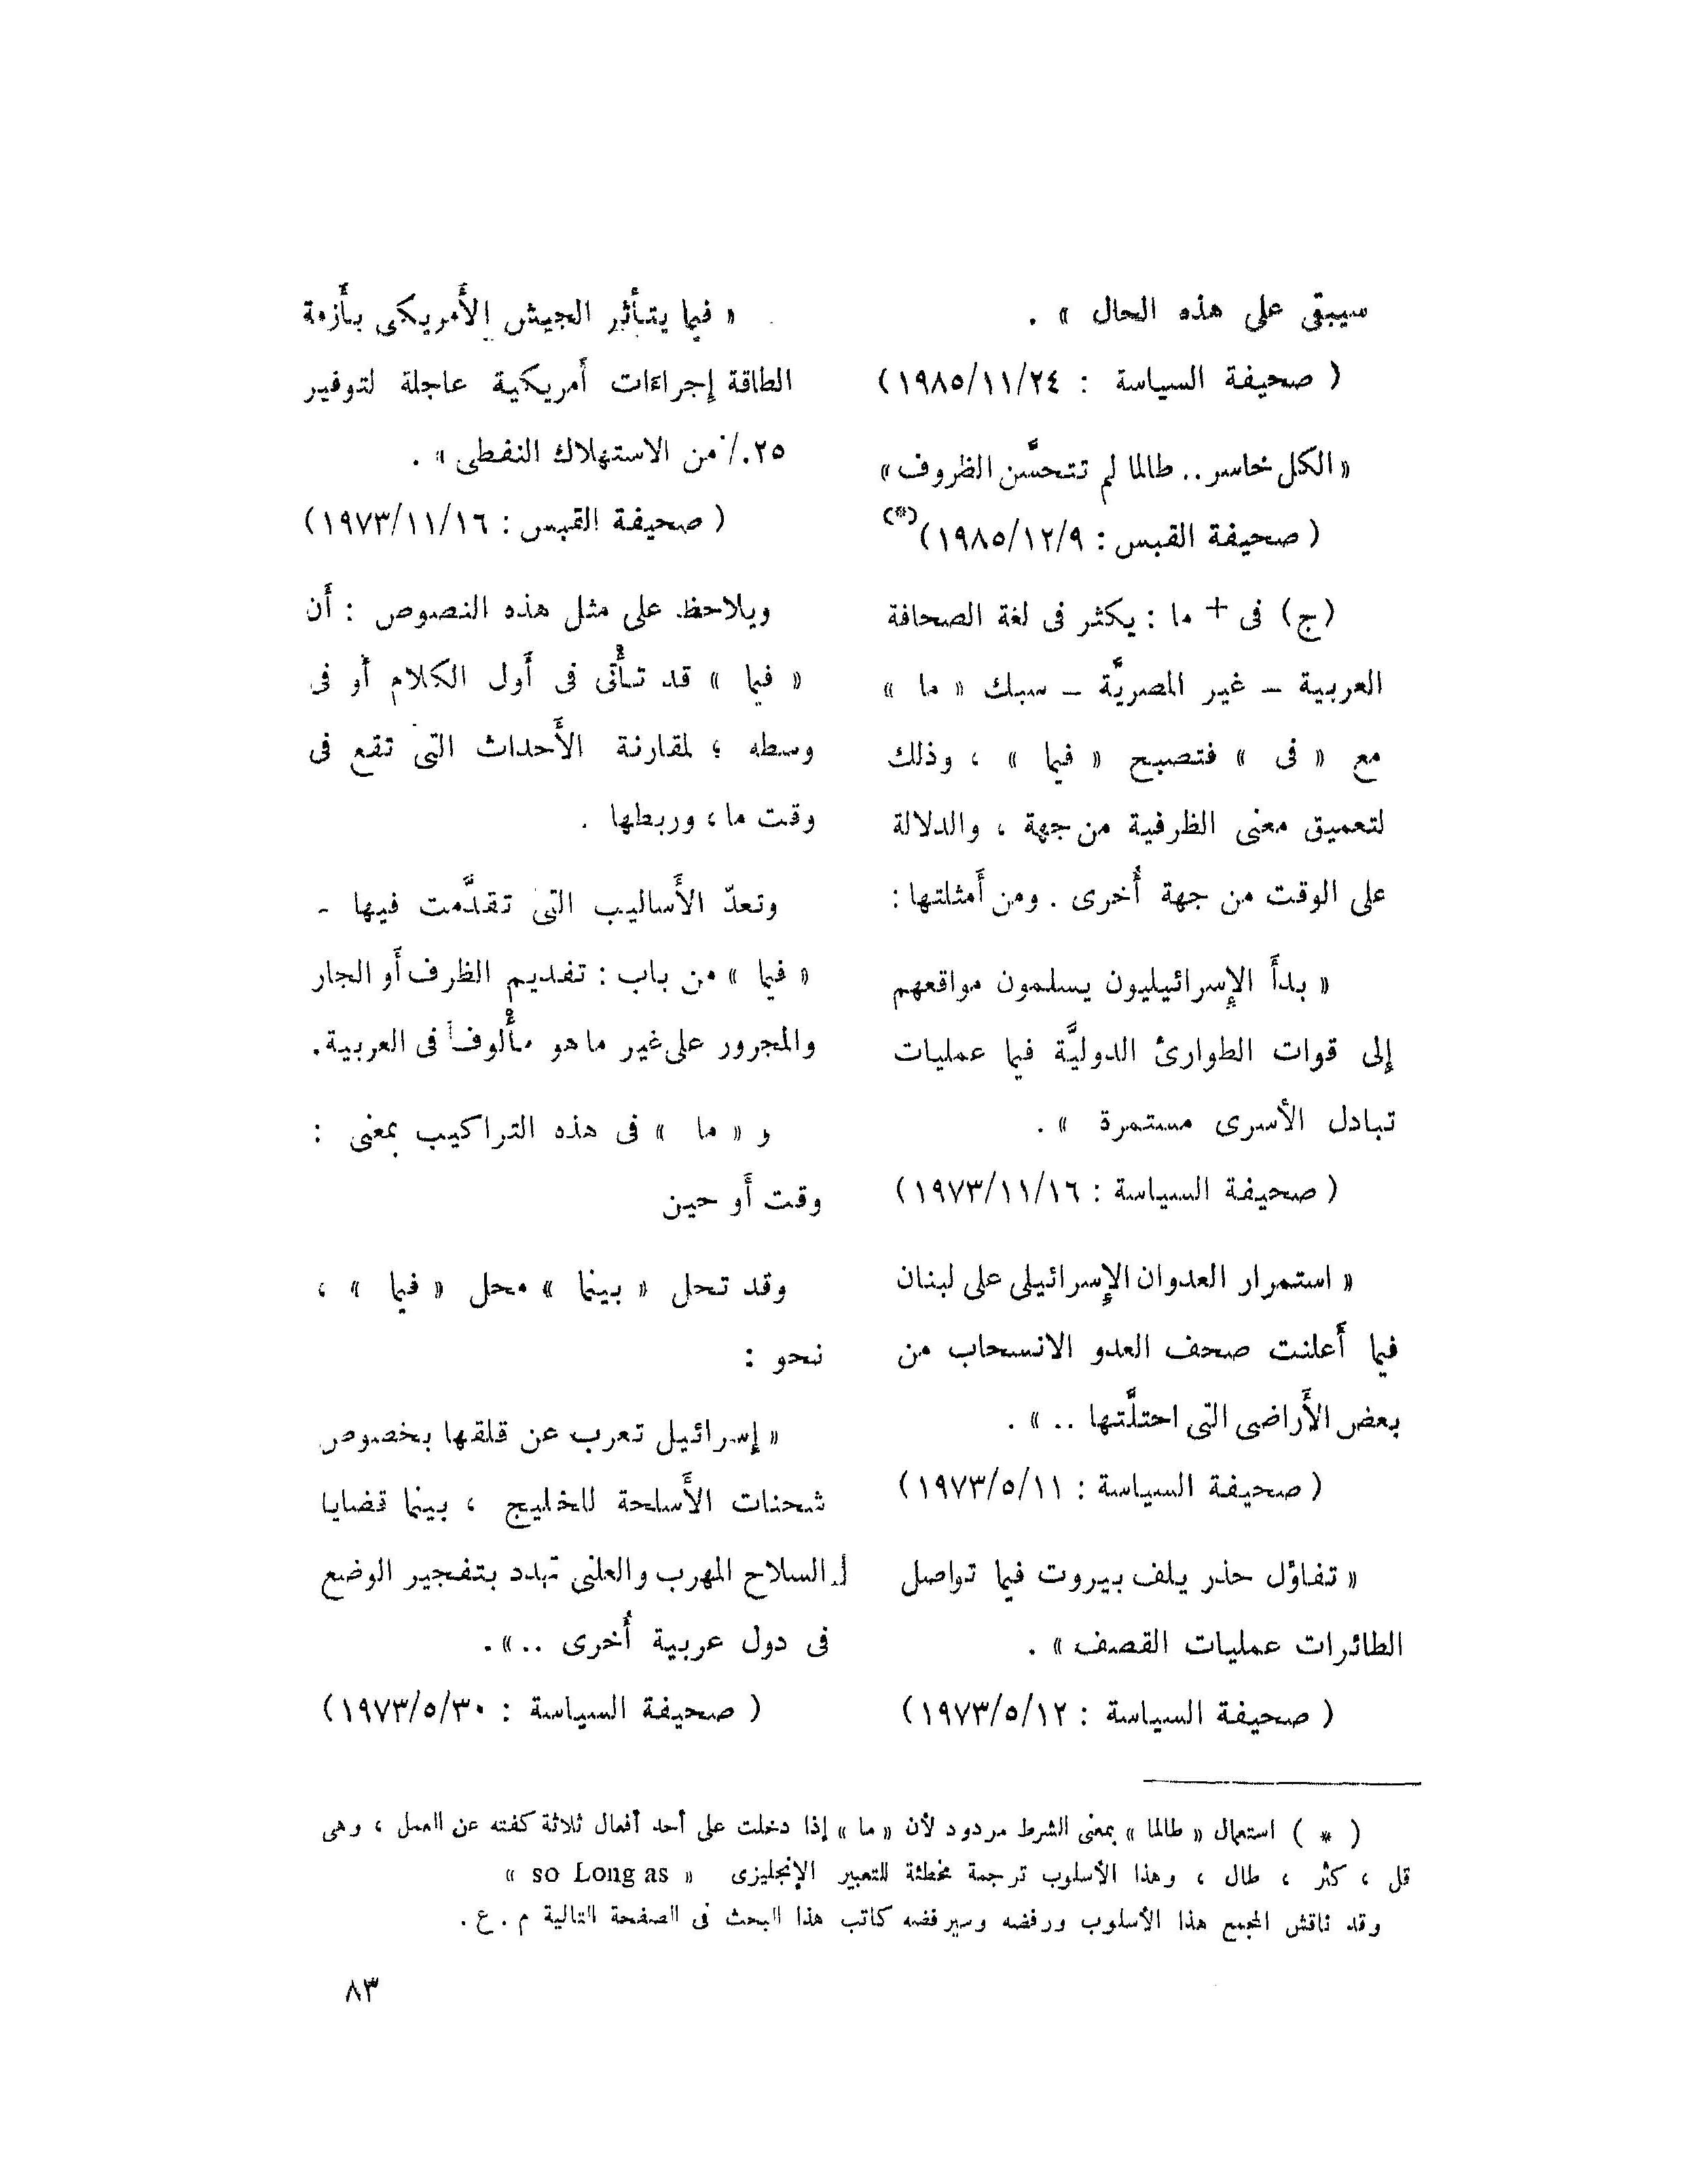 سيبقى على هذه الحال » .
( صحيفة السياسة : ١٩٨٥/١١/٢٤)
« الكل خاسر .. طالما لم تتحسَّن الظروف »
( صحيفة القبس : ١٩٨٥/١٢/٩)(*)
(ج) فى + ما : يكثر فى لغة الصحافة
العربية – غير المصريَّة – سبك « ما »
مع « فى » فتصبح « فيما » ، وذلك
لتعميق معنى الظرفية من جهة ، والدلالة
على الوقت من جهة أُخرى . ومن أَمثلتها :
« بدأَ الإِسرائيليون يسلمون مواقعهم
إلى قوات الطوارئ الدوليَّة فيما عمليات
تبادل الأسرى مستمرة » .
( صحيفة السياسة : ١٩٧٣/١١/١٦)
« استمرار العدوان الإِسرائيلى على لبنان
فيما أَعلنت صحف العدو الانسحاب من
بعض الأَراضى التى احتلَّتها .. » .
( صحيفة السياسة : ١٩٧٣/٥/١١)
« تفاؤل حذر يلف بيروت فيما تواصل
الطائرات عمليات القصف » .
( صحيفة السياسة : ١٩٧٣/٥/١٢)
« فيما يتأثر الجيش الأَمريكى بأَزمة
الطاقة إجراءات أَمريكية عاجلة لتوفير
٢٥٪ من الاستهلاك النفطى » .
( صحيفة القبس : ١٩٧٣/١١/١٦)
ويلاحظ على مثل هذه النصوص : أَن
« فيما » قد تأْتى فى أَول الكلام أَو فى
وسطه ؛ لمقارنة الأَحداث التى تقع فى
وقت ما ، وربطها .
وتعدّ الأَساليب التى تقدَّمت فيها -
« فيما » من باب : تقديم الظرف أَو الجار
والمجرور على غير ما هو مأْلوف فى العربية .
و « ما » فى هذه التراكيب بمعنى :
وقت أَو حين
وقد تحل « بينما » محل « فيما » ،
نحو :
« إسرائيل تعرب عن قلقها بخصوص
شحنات الأَسلحة للخليج ، بينما قضايا
السلاح المهرب والعلنى تهدد بتفجير الوضع
فى دول عربية أُخرى .. » .
( صحيفة السياسة : ١٩٧٣/٥/٣٠)
( * ) استعمال « طالما » بمعنى الشرط مردود لأن « ما » إذا دخلت على أحد أفعال ثلاثة كفته عن العمل ، وهى
قل ، كثر ، طال ، وهذا الأسلوب ترجمة مخطئة للتعبير الإنجليزى « so Long as »
وقد ناقش المجمع هذا الأسلوب ورفضه وسيرفضه كاتب هذا البحث فى الصفحة التالية م . ع .
٨٣